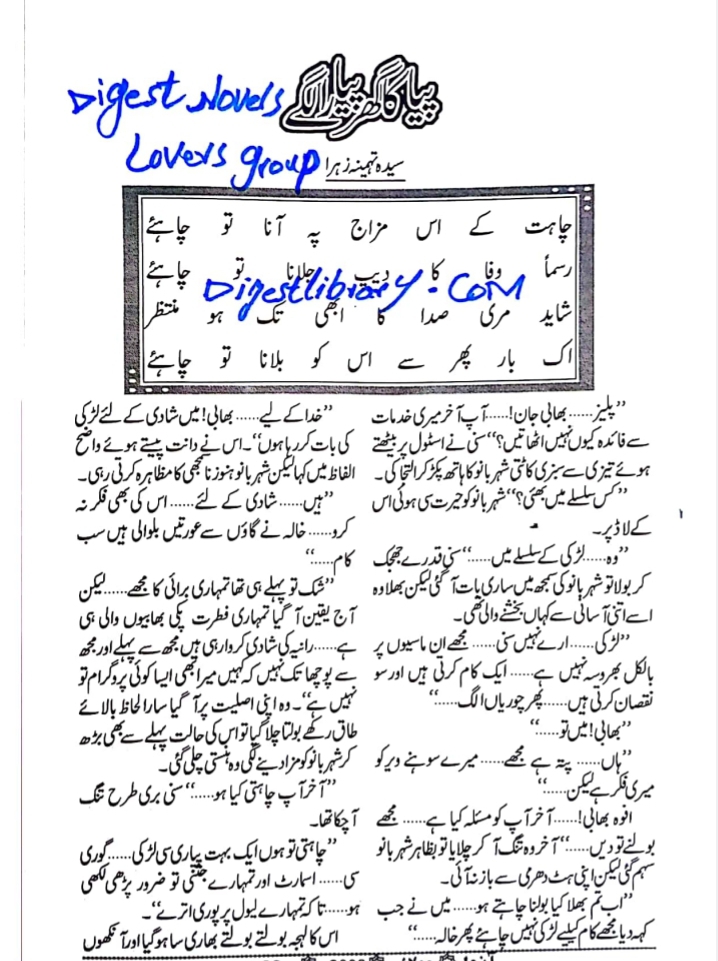 پیا کا گھر پیارا لگے
Digest Novels
Lovers group
سیدہ تہمینہ زہرا
چاہت کے اس مزاج پہ آنا تو چاہئے
رسماً وفا کا دیپ جلانا تو چاہئے
Digestlibrary.com
شاید مری صدا کا ابھی تک ہو منتظر
اک بار پھر سے اس کو بلانا تو چاہئے
”پلیز...... بھابی جان!...... آپ آخر میری خدمات
سے فائدہ کیوں نہیں اٹھاتیں؟“ سنی نے اسٹول پر بیٹھتے
ہوئے تیزی سے سبزی کاٹتی شہر بانو کا ہاتھ پکڑ کر التجا کی۔
”کس سلسلے میں بھئی؟“ شہر بانو کو حیرت سی ہوئی اس
کے لاڈ پر۔
”وہ...... لڑکی کے سلسلے میں......“ سنی قدرے جھجک
کر بولا تو شہر بانو کی سمجھ میں ساری بات آ گئی لیکن بھلا وہ
اسے اتنی آسانی سے کہاں بخشنے والی تھی۔
”لڑکی...... ارے نہیں سنی...... مجھے ان ماسیوں پر
بالکل بھروسہ نہیں ہے...... ایک کام کرتی ہیں اور سو
نقصان کرتی ہیں...... پھر چوریاں الگ......“
”بھابی! میں تو......“
”ہاں...... پتہ ہے مجھے...... میرے سوہنے ویر کو
میری فکر ہے لیکن......“
افوہ بھابی!...... آخر آپ کو مسئلہ کیا ہے...... مجھے
بولنے تو دیں......“ آخر وہ تنگ آ کر چلایا تو بظاہر شہر بانو
سہم گئی لیکن اپنی ہٹ دھرمی سے باز نہ آئی۔
”اب تم بھلا کیا بولنا چاہتے ہو...... میں نے جب
کہہ دیا مجھے کام کیلیے لڑکی نہیں چاہئے پھر خالہ......“
”خدا کے لیے...... بھابی! میں شادی کے لئے لڑکی
کی بات کر رہا ہوں“۔ اس نے دانت پیستے ہوئے واضح
الفاظ میں کہا لیکن شہر بانو ہنوز ناسمجھی کا مظاہرہ کرتی رہی۔
”ہیں...... شادی کے لئے...... اس کی بھی فکر نہ
کرو...... خالہ نے گاؤں سے عورتیں بلوالی ہیں سب
کام......“
”شک تو پہلے ہی تھا تمہاری برائی کا مجھے...... لیکن
آج یقین آ گیا تمہاری فطرت پکی بھابیوں والی ہی
ہے...... رانیہ کی شادی کروا رہی ہیں مجھ سے پہلے اور مجھ
سے پوچھا تک نہیں کہ کہیں میرا بھی ایسا کوئی پروگرام تو
نہیں ہے“۔ وہ اپنی اصلیت پر آ گیا سارا لحاظ بالائے
طاق رکھے بولتا چلا گیا تو اس کی حالت پہلے سے بھی بڑھ
کر شہر بانو کو مزا دینے لگی وہ ہنستی چلی گئی۔
”آخر آپ چاہتی کیا ہو......“ سنی بری طرح تنگ
آ چکا تھا۔
”چاہتی تو ہوں ایک بہت پیاری سی لڑکی...... گوری
سی...... اسمارٹ اور تمہارے جتنی تو ضرور پڑھی لکھی
ہو...... تاکہ تمہارے لیول پر پوری اترے“۔
اس کا لہجہ بولتے بولتے بھاری سا ہو گیا اور آنکھوں